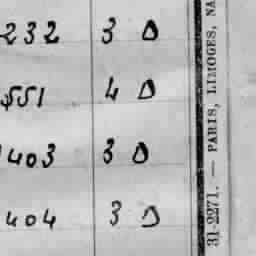 232 3 D
551 4 D
403 3 D
404 3 D
31-2271. — PARIS, LIMOGES, NA